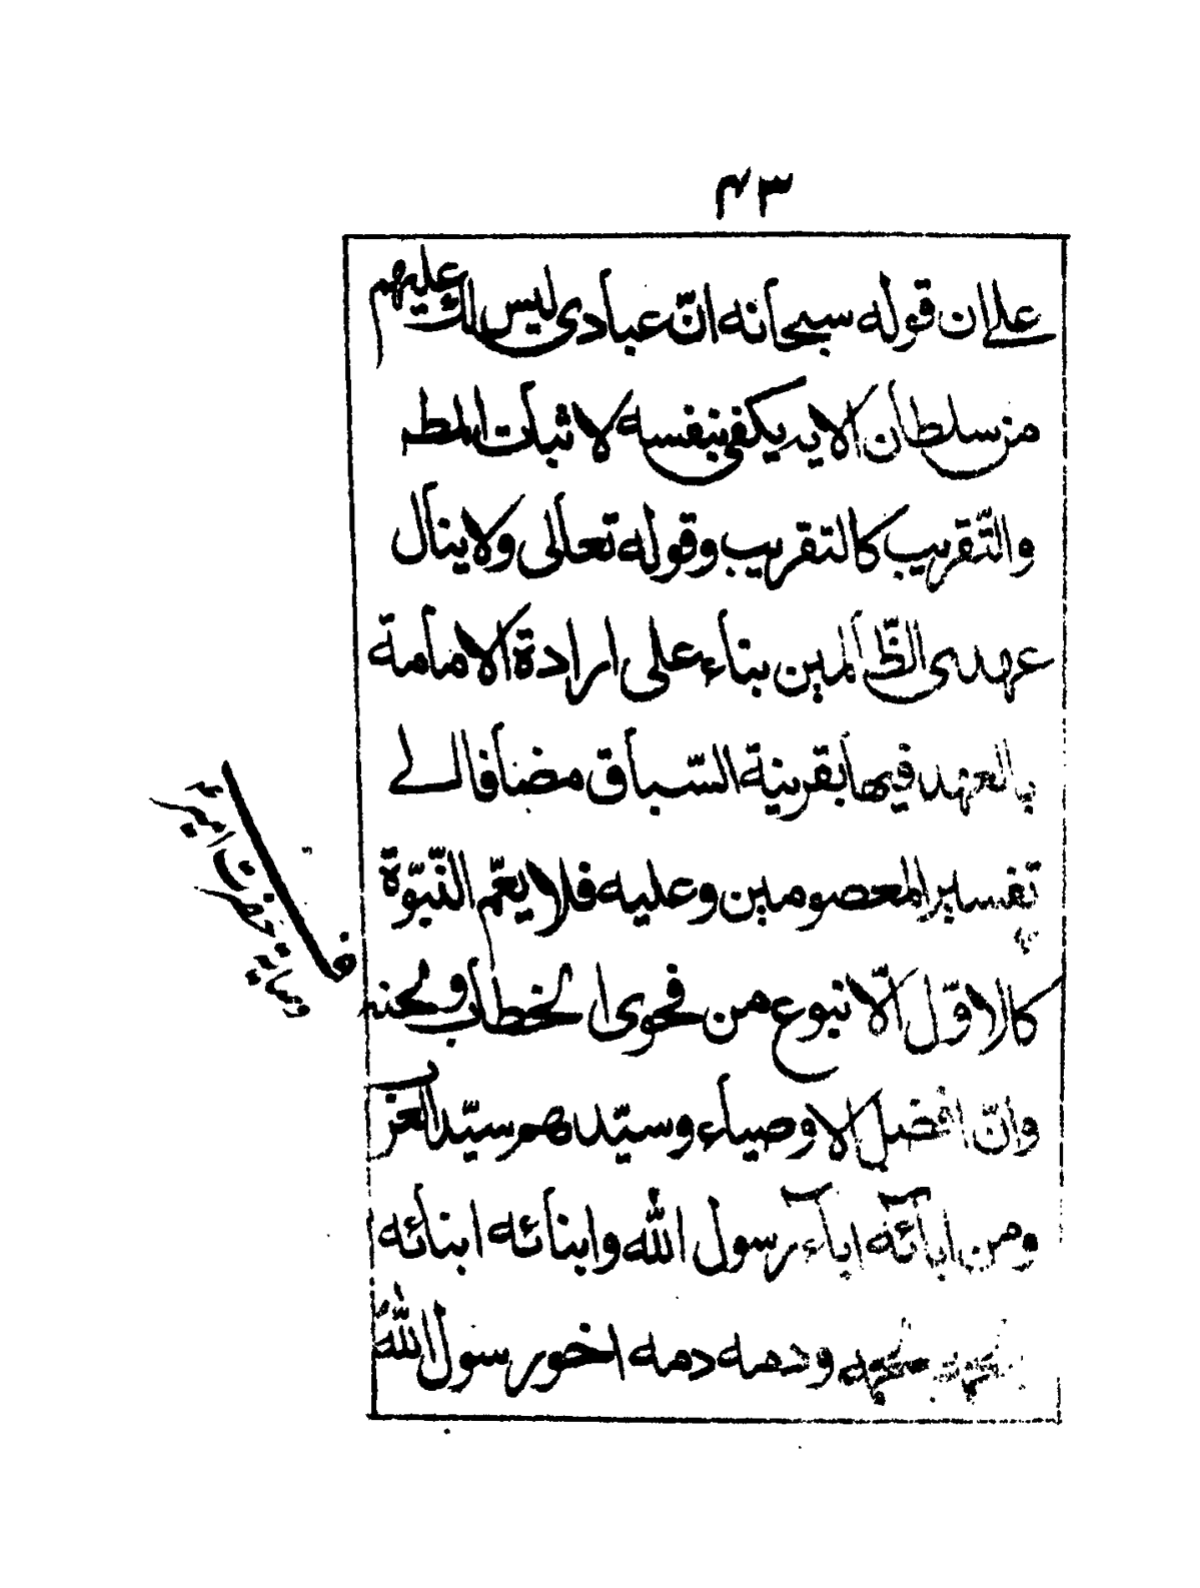 ۴۳
على ان قوله سبحانه انّ عبادى ليس لك عليهم
من سلطان الايه يكفى بنفسه لاثبات المط
والتّقريب كالتقريب وقوله تعالى ولا ينال
عهدى الظّالمين بناء على ارادة الامامة
بالعهد فيها بقرينة السّباق مضافا الى
تفسير المعصومين وعليه فلا يعّم النّبوّة
كالاوّل الّا بنوع من فحوى الخطاب ولحنه
وانّ افضل الاوصياء وسيّدهم سيّد العرب
ومن ابآئه ابآء رسول الله وابنائه ابنائه
لحمه ودمه دمه اخو رسول الله
فى وصاية حضرت امير ع